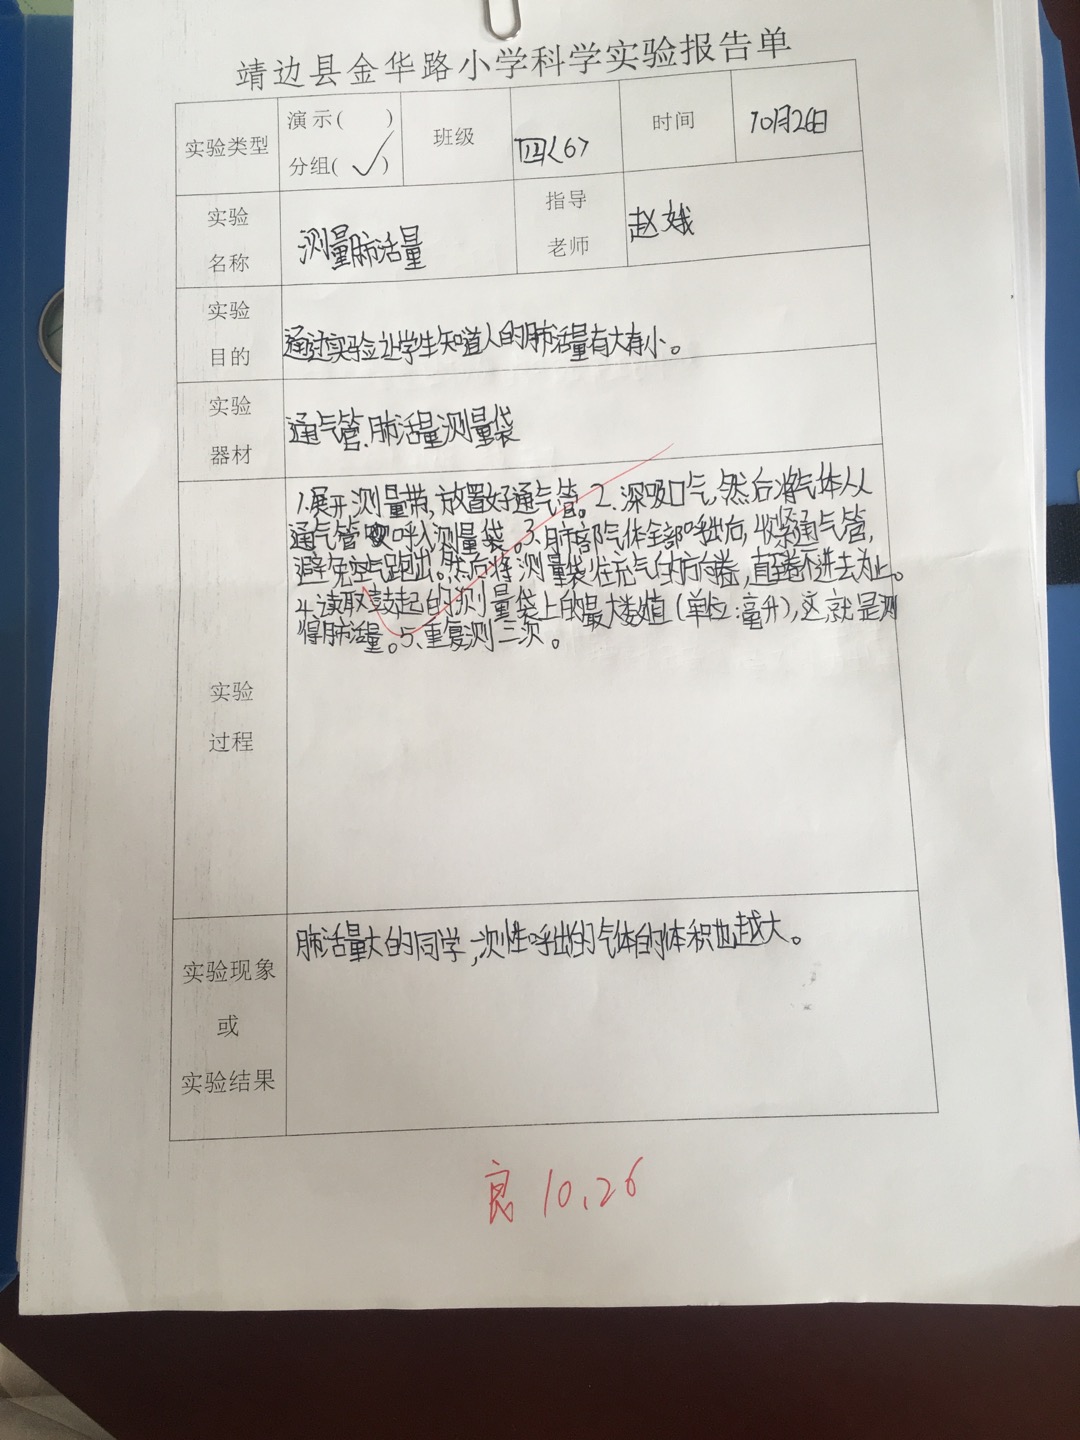 靖边县金华路小学科学实验报告单
实验类型
演示( )
分组( ✓ )
班级
四(6)
时间
10月26日
实验
名称
测量肺活量
指导
老师
赵娥
实验
目的
通过实验让学生知道人的肺活量有大有小。
实验
器材
通气管、肺活量测量袋
实验
过程
1.展开测量带,放置好通气管。2.深吸口气,然后将气体从
通气管呼入测量袋。3.肺部气体全部呼出后,收紧通气管,
避免空气跑出。然后将测量袋往充气的方向卷,直至卷不进去为止。
4.读取鼓起的测量袋上的最大数值(单位:毫升),这就是测
得肺活量。5.重复测三次。
实验现象
或
实验结果
肺活量大的同学,一次性呼出的气体的体积也越大。
良 10.26